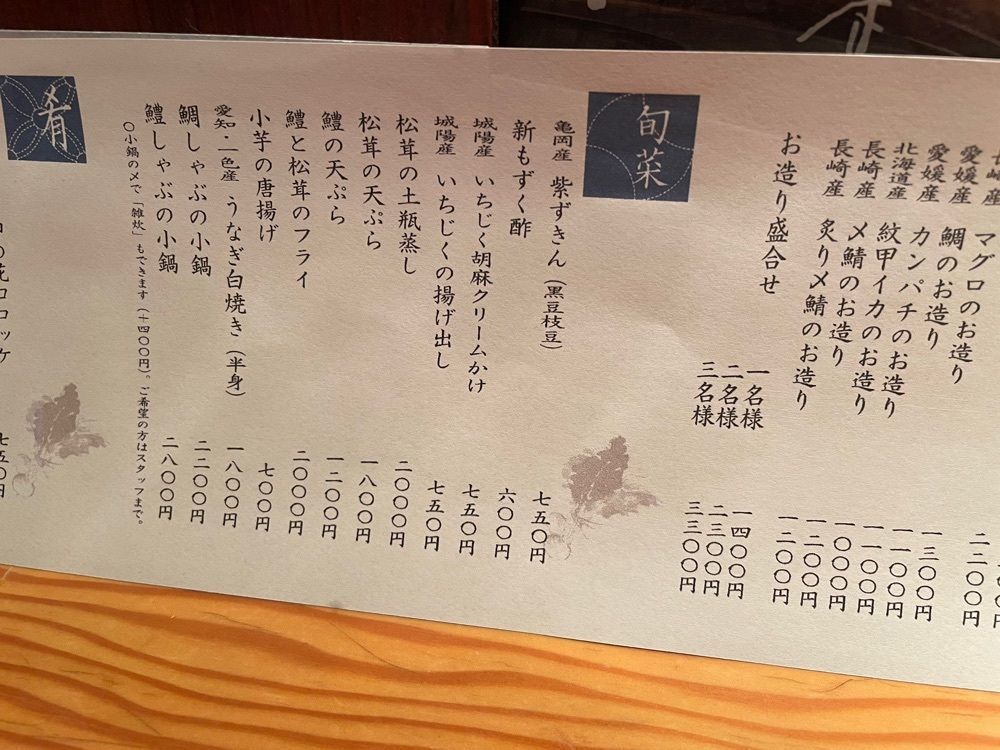 二二〇〇円
長崎産 マグロのお造り 一三〇〇円
愛媛産 鯛のお造り 一一〇〇円
愛媛産 カンパチのお造り 一一〇〇円
北海道産 紋甲イカのお造り 一〇〇〇円
長崎産 〆鯖のお造り 一二〇〇円
長崎産 炙り〆鯖のお造り 一二〇〇円
お造り盛合せ
一名様 一四〇〇円
二名様 二三〇〇円
三名様 三三〇〇円
旬菜
亀岡産 紫ずきん(黒豆枝豆) 七五〇円
新もずく酢 六〇〇円
城陽産 いちじく胡麻クリームかけ 七五〇円
城陽産 いちじくの揚げ出し 七五〇円
松茸の土瓶蒸し 二〇〇〇円
松茸の天ぷら 一八〇〇円
鱧の天ぷら 一二〇〇円
鱧と松茸のフライ 二〇〇〇円
小芋の唐揚げ 七〇〇円
愛知・一色産 うなぎ白焼き(半身) 一八〇〇円
鯛しゃぶの小鍋 二二〇〇円
鱧しゃぶの小鍋 二八〇〇円
〇小鍋の〆で「雑炊」もできます(+四〇〇円)。ご希望の方はスタッフまで。
肴
の花コロッケ 七五〇円